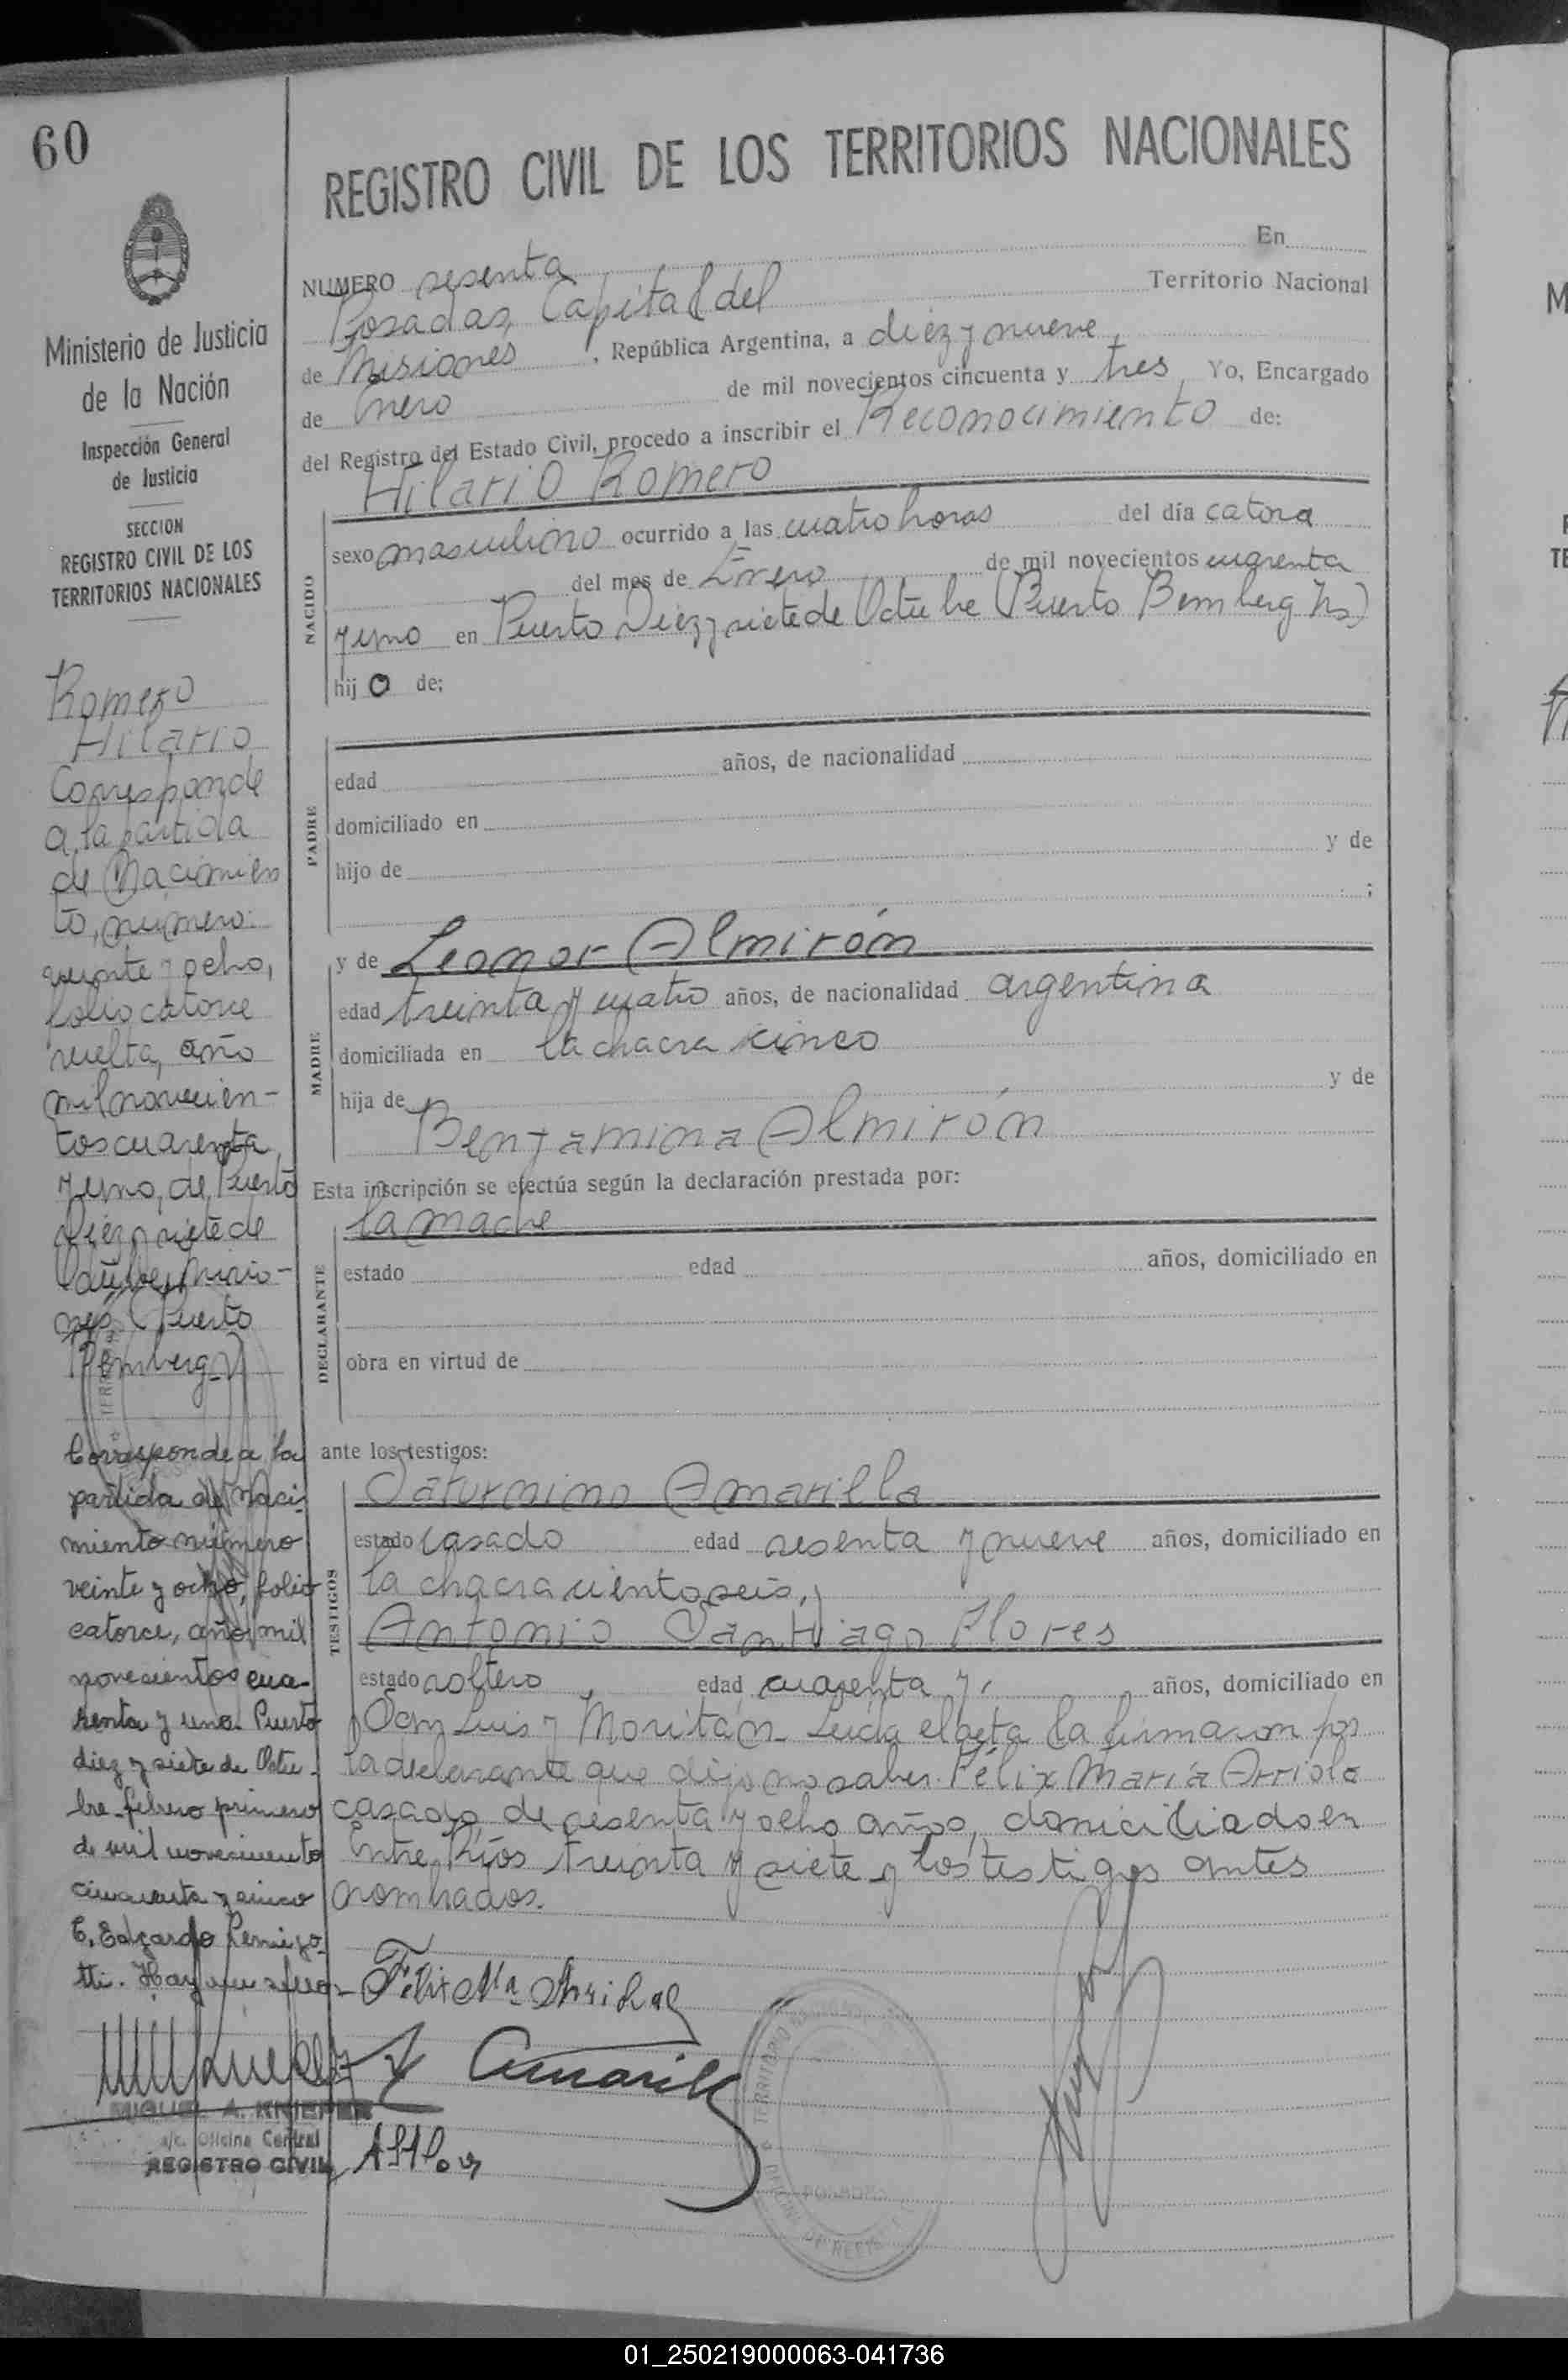 60
REGISTRO CIVIL DE LOS TERRITORIOS NACIONALES
Ministerio de Justicia
de la Nación
Inspección General
de Justicia
SECCION
REGISTRO CIVIL DE LOS
TERRITORIOS NACIONALES
NUMERO sesenta En
Posadas, Capital del Territorio Nacional
de Misiones, República Argentina, a diez y nueve
de Enero de mil novecientos cincuenta y tres Yo, Encargado
del Registro del Estado Civil, procedo a inscribir el Reconocimiento de:
Hilario Romero
NACIDO
sexo masculino ocurrido a las cuatro horas del día catorce
del mes de Enero de mil novecientos cuarenta
y uno en Puerto Diez y siete de Octubre (Puerto Bemberg Ms)
hijo de;
PADRE
edad años, de nacionalidad
domiciliado en
hijo de y de
;
MADRE
y de Leonor Almirón
edad treinta y cuatro años, de nacionalidad argentina
domiciliada en la chacra cinco
hija de y de
Benjamina Almirón
Esta inscripción se efectúa según la declaración prestada por:
DECLARANTE
la madre
estado edad años, domiciliado en
obra en virtud de
ante los testigos:
TESTIGOS
Saturnino Amarilla
estado casado edad sesenta y nueve años, domiciliado en
la chacra ciento seis,
Antonio Santiago Flores
estado soltero edad cuarenta y años, domiciliado en
San Luis y Moritán. Leida el acta la firmaron por
la declarante que dijo no saber. Félix María Arriola
casado, de sesenta y ocho años, domiciliado en
Entre Ríos treinta y siete y los testigos antes
nombrados.
Romero
Hilario
Corresponde
a la partida
de Nacimien
to, número:
veinte y ocho,
folio catorce
vuelta, año
mil novecien-
tos cuarenta
y uno, de Puerto
Diez y siete de
Octubre, Misio-
nes (Puerto
Bemberg)
Corresponde a la
partida de Naci-
miento número
veinte y ocho, folio
catorce, año mil
novecientos cua-
renta y uno. Puerto
diez y siete de Octu-
bre - febrero primero
de mil novecientos
cincuenta y cinco
E. Edgardo
Hay un sello
Felix Ma Arriola
Amarilla
MIGUEL A. KNIEPER
a/c. Oficina Central
REGISTRO CIVIL
TERRITORIO
POSADAS
01_250219000063-041736